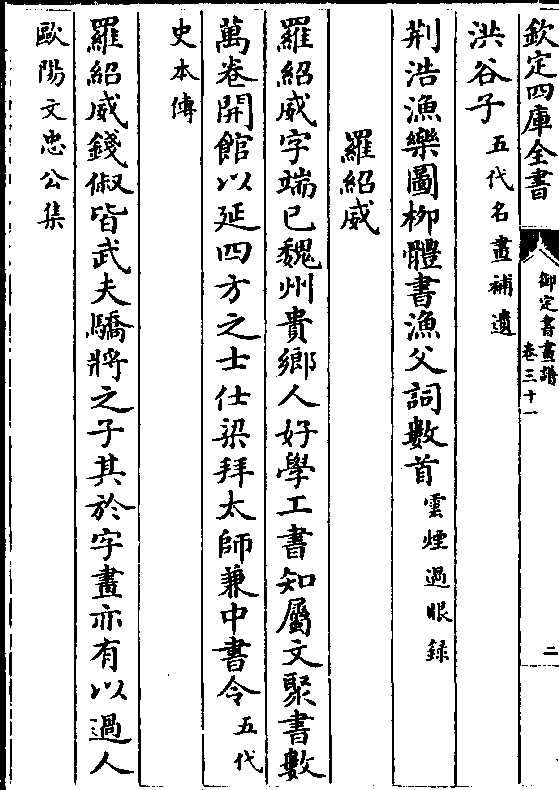 欽定四庫全書
御定書畫譜
卷三十一
二
洪谷子五代名畫補遺
荆浩漁樂圖栁體書漁父詞數首雲煙過眼録
羅紹威
羅紹威字端已魏州貴鄉人好學工書知屬文聚書數
萬卷開館以延四方之士仕梁拜太師兼中書令五代
史本傳
羅紹威錢俶皆武夫驕將之子其於字畫亦有以過人
歐陽文忠公集